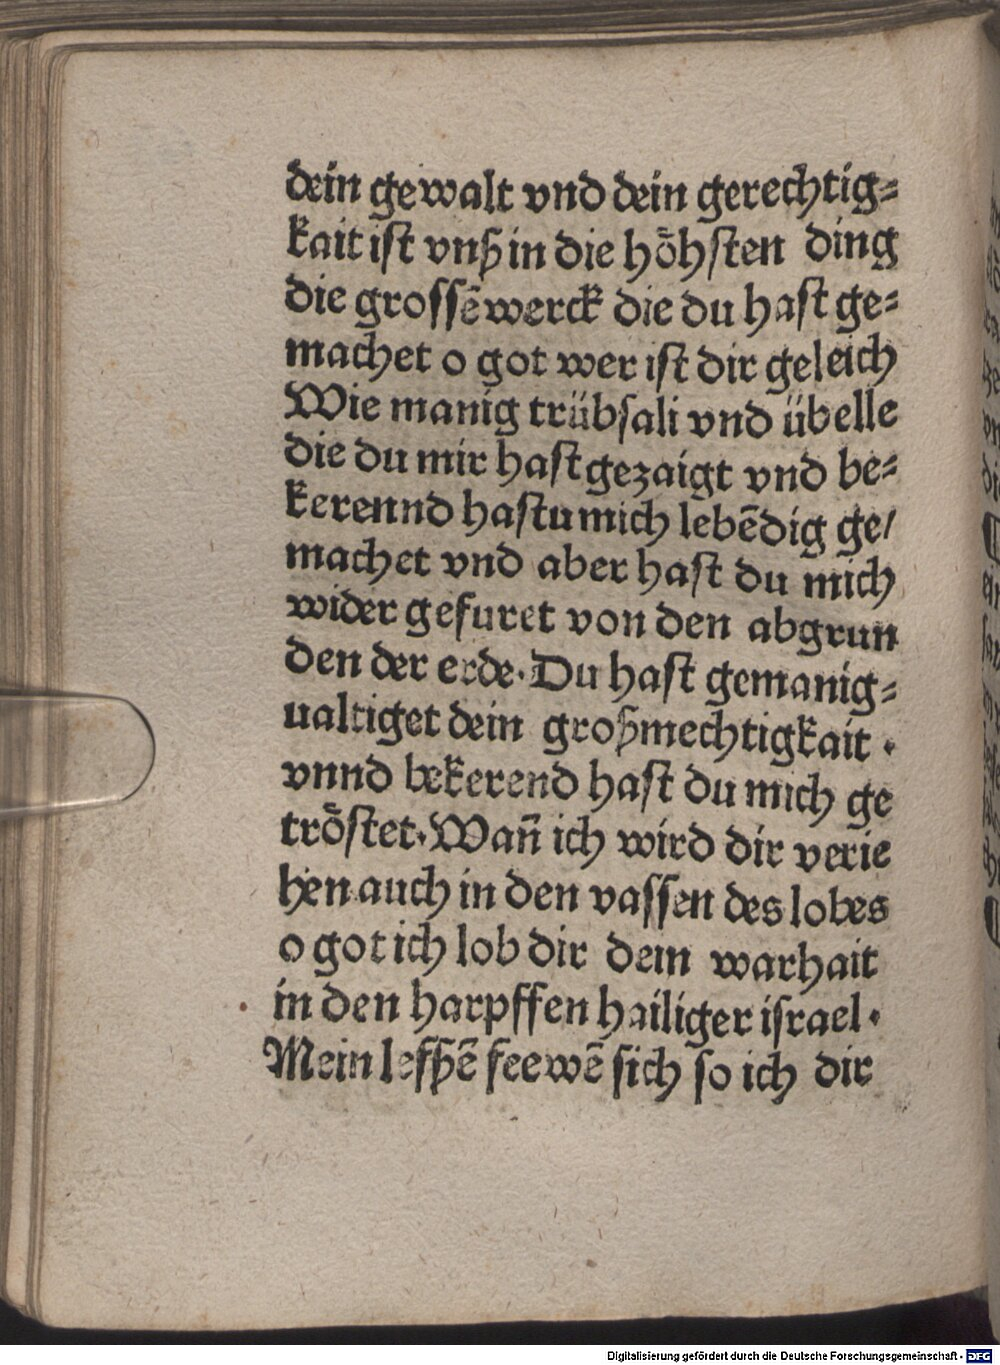 dein gewalt vnd dein gerechtig⸗
kait ist vnß in die hoͤhsten ding
die grossē werck die du hast ge⸗
machet o got wer ist dir geleich
Wie manig trübsali vnd übelle
die du mir hast gezaigt vnd be⸗
kerennd hastu mich lebēdig ge/
machet vnd aber hast du mich
wider gefuret von den abgrun
den der erde. Du hast gemanig⸗
ualtiget dein großmechtigkait .
vnnd bekerend hast du mich ge
troͤstet. Wan̄ ich wird dir verie
hen auch in den vassen des lobes
o got ich lob dir dein warhait
in den harpffen hailiger israel.
Mein lefßē feewē sich so ich dir
Digitalisierung gefördert durch die Deutsche Forschungsgemeinschaft - DFG